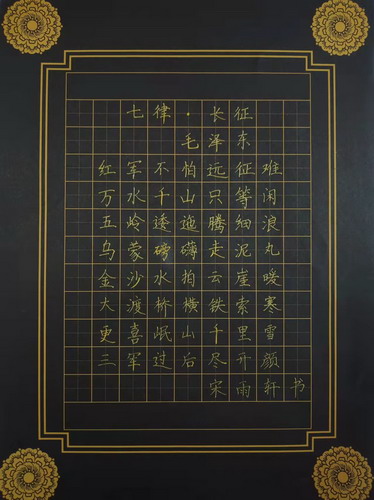 七律·长征
毛泽东
红军不怕远征难
万水千山只等闲
五岭逶迤腾细浪
乌蒙磅礴走泥丸
金沙水拍云崖暖
大渡桥横铁索寒
更喜岷山千里雪
三军过后尽开颜
宋雨轩书